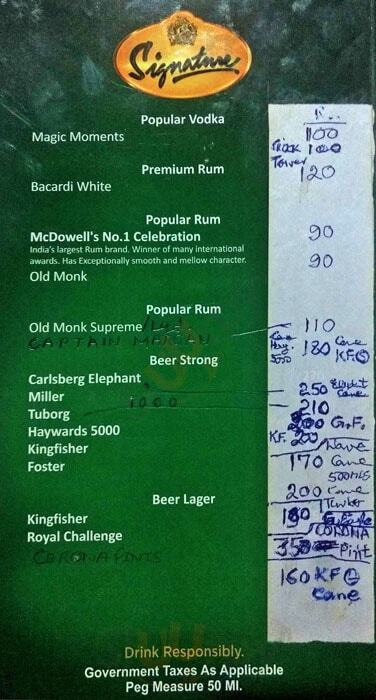 Signature
Popular Vodka
Magic Moments 100
100
Tower
Premium Rum 120
Bacardi White
Popular Rum
McDowell's No.1 Celebration 90
India's largest Rum brand. Winner of many international
awards. Has Exceptionally smooth and mellow character.
Old Monk 90
Popular Rum
Old Monk Supreme 110
CAPTAIN MORGAN 180 Cane
5000 KF
Beer Strong
Carlsberg Elephant 250 Elephant Cane
Miller 1000 210
Tuborg 200 G.F.
Haywards 5000 KF. 200
Kingfisher 170 Cane
Foster 500 MLS
200 Cane
Beer Lager
Kingfisher 180
Royal Challenge CORONA
CORONA PINTS 350 Pint
160 KF
Cane
Drink Responsibly.
Government Taxes As Applicable
Peg Measure 50 Ml.